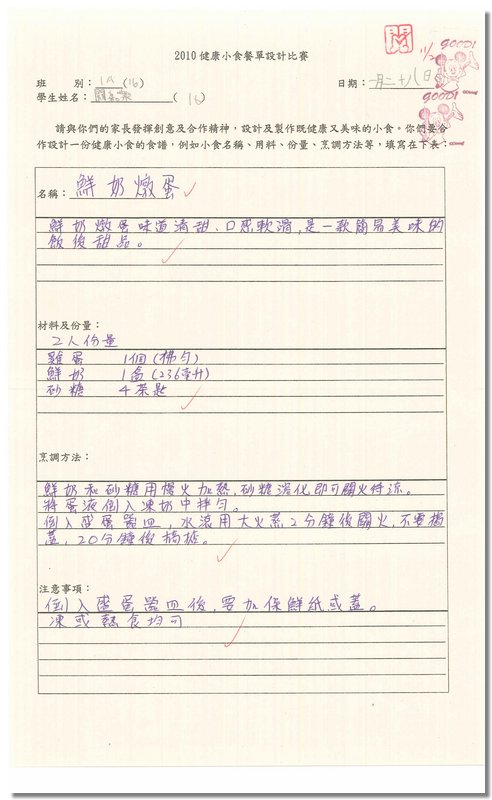 閱
11/2
GOOD!
GOOD!
2010 健康小食餐單設計比賽
班　別：1A (16)
日期：一月二十八日
學生姓名： ( 16 )
請與你們的家長發揮創意及合作精神，設計及製作既健康又美味的小食。你們要合
作設計一份健康小食的食譜，例如小食名稱、用料、份量、烹調方法等，填寫在下表：
名稱：鮮奶燉蛋
鮮奶燉蛋味道清甜、口感軟滑，是一款簡易美味的
飯後甜品。
材料及份量：
2人份量
雞蛋 1個(拂勻)
鮮奶 1盒(236毫升)
砂糖 4茶匙
烹調方法：
鮮奶和砂糖用慢火加熱，砂糖溶化即可關火待涼。
將蛋液倒入凍奶中拌勻。
倒入燉蛋器皿，水滾用大火蒸2分鐘後關火，不要揭
蓋，20分鐘後揭蓋。
注意事項：
倒入燉蛋器皿後，要加保鮮紙或蓋。
凍或熱食均可